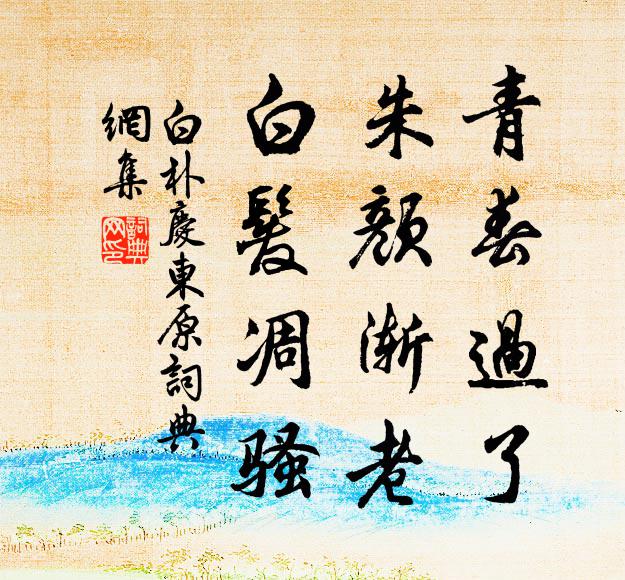 青春過了
朱顏漸老
白髮凋騷
白朴慶東原詞典
網集
詞典
網印